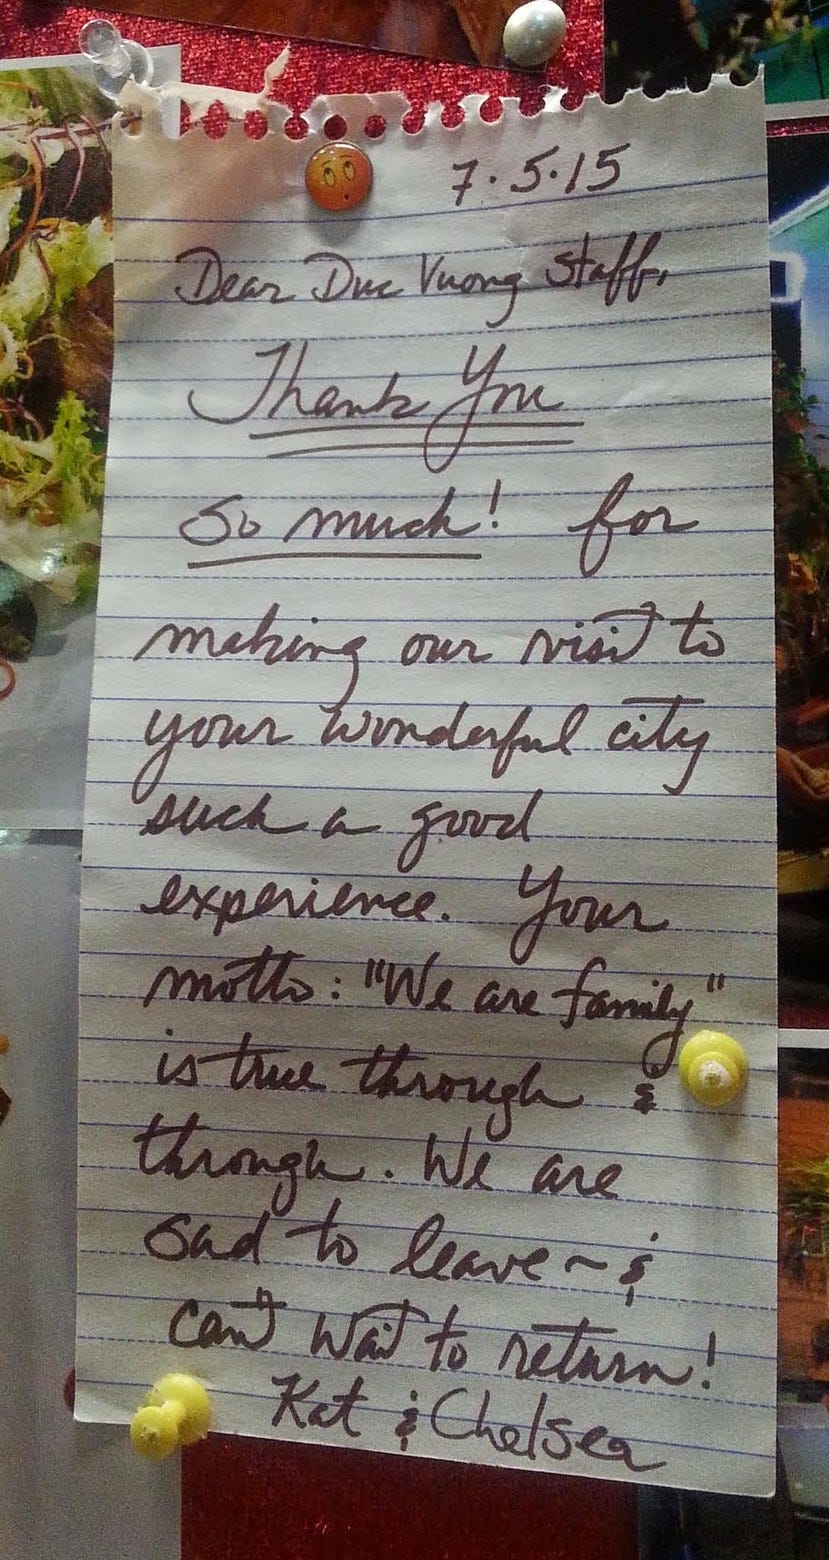 7.5.15
Dear Duc Vuong Staff,
Thank You
so much! for
making our visit to
your wonderful city
such a good
experience. Your
motto: "We are family"
is true through &
through. We are
sad to leave ~ &
can't wait to return!
Kat & Chelsea